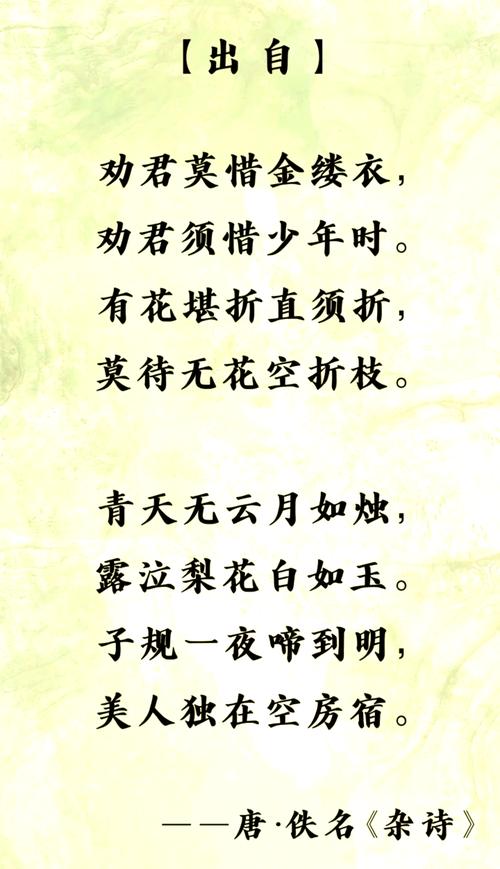 【出自】
劝君莫惜金缕衣，
劝君须惜少年时。
有花堪折直须折，
莫待无花空折枝。
青天无云月如烛，
露泣梨花白如玉。
子规一夜啼到明，
美人独在空房宿。
——唐·佚名《杂诗》